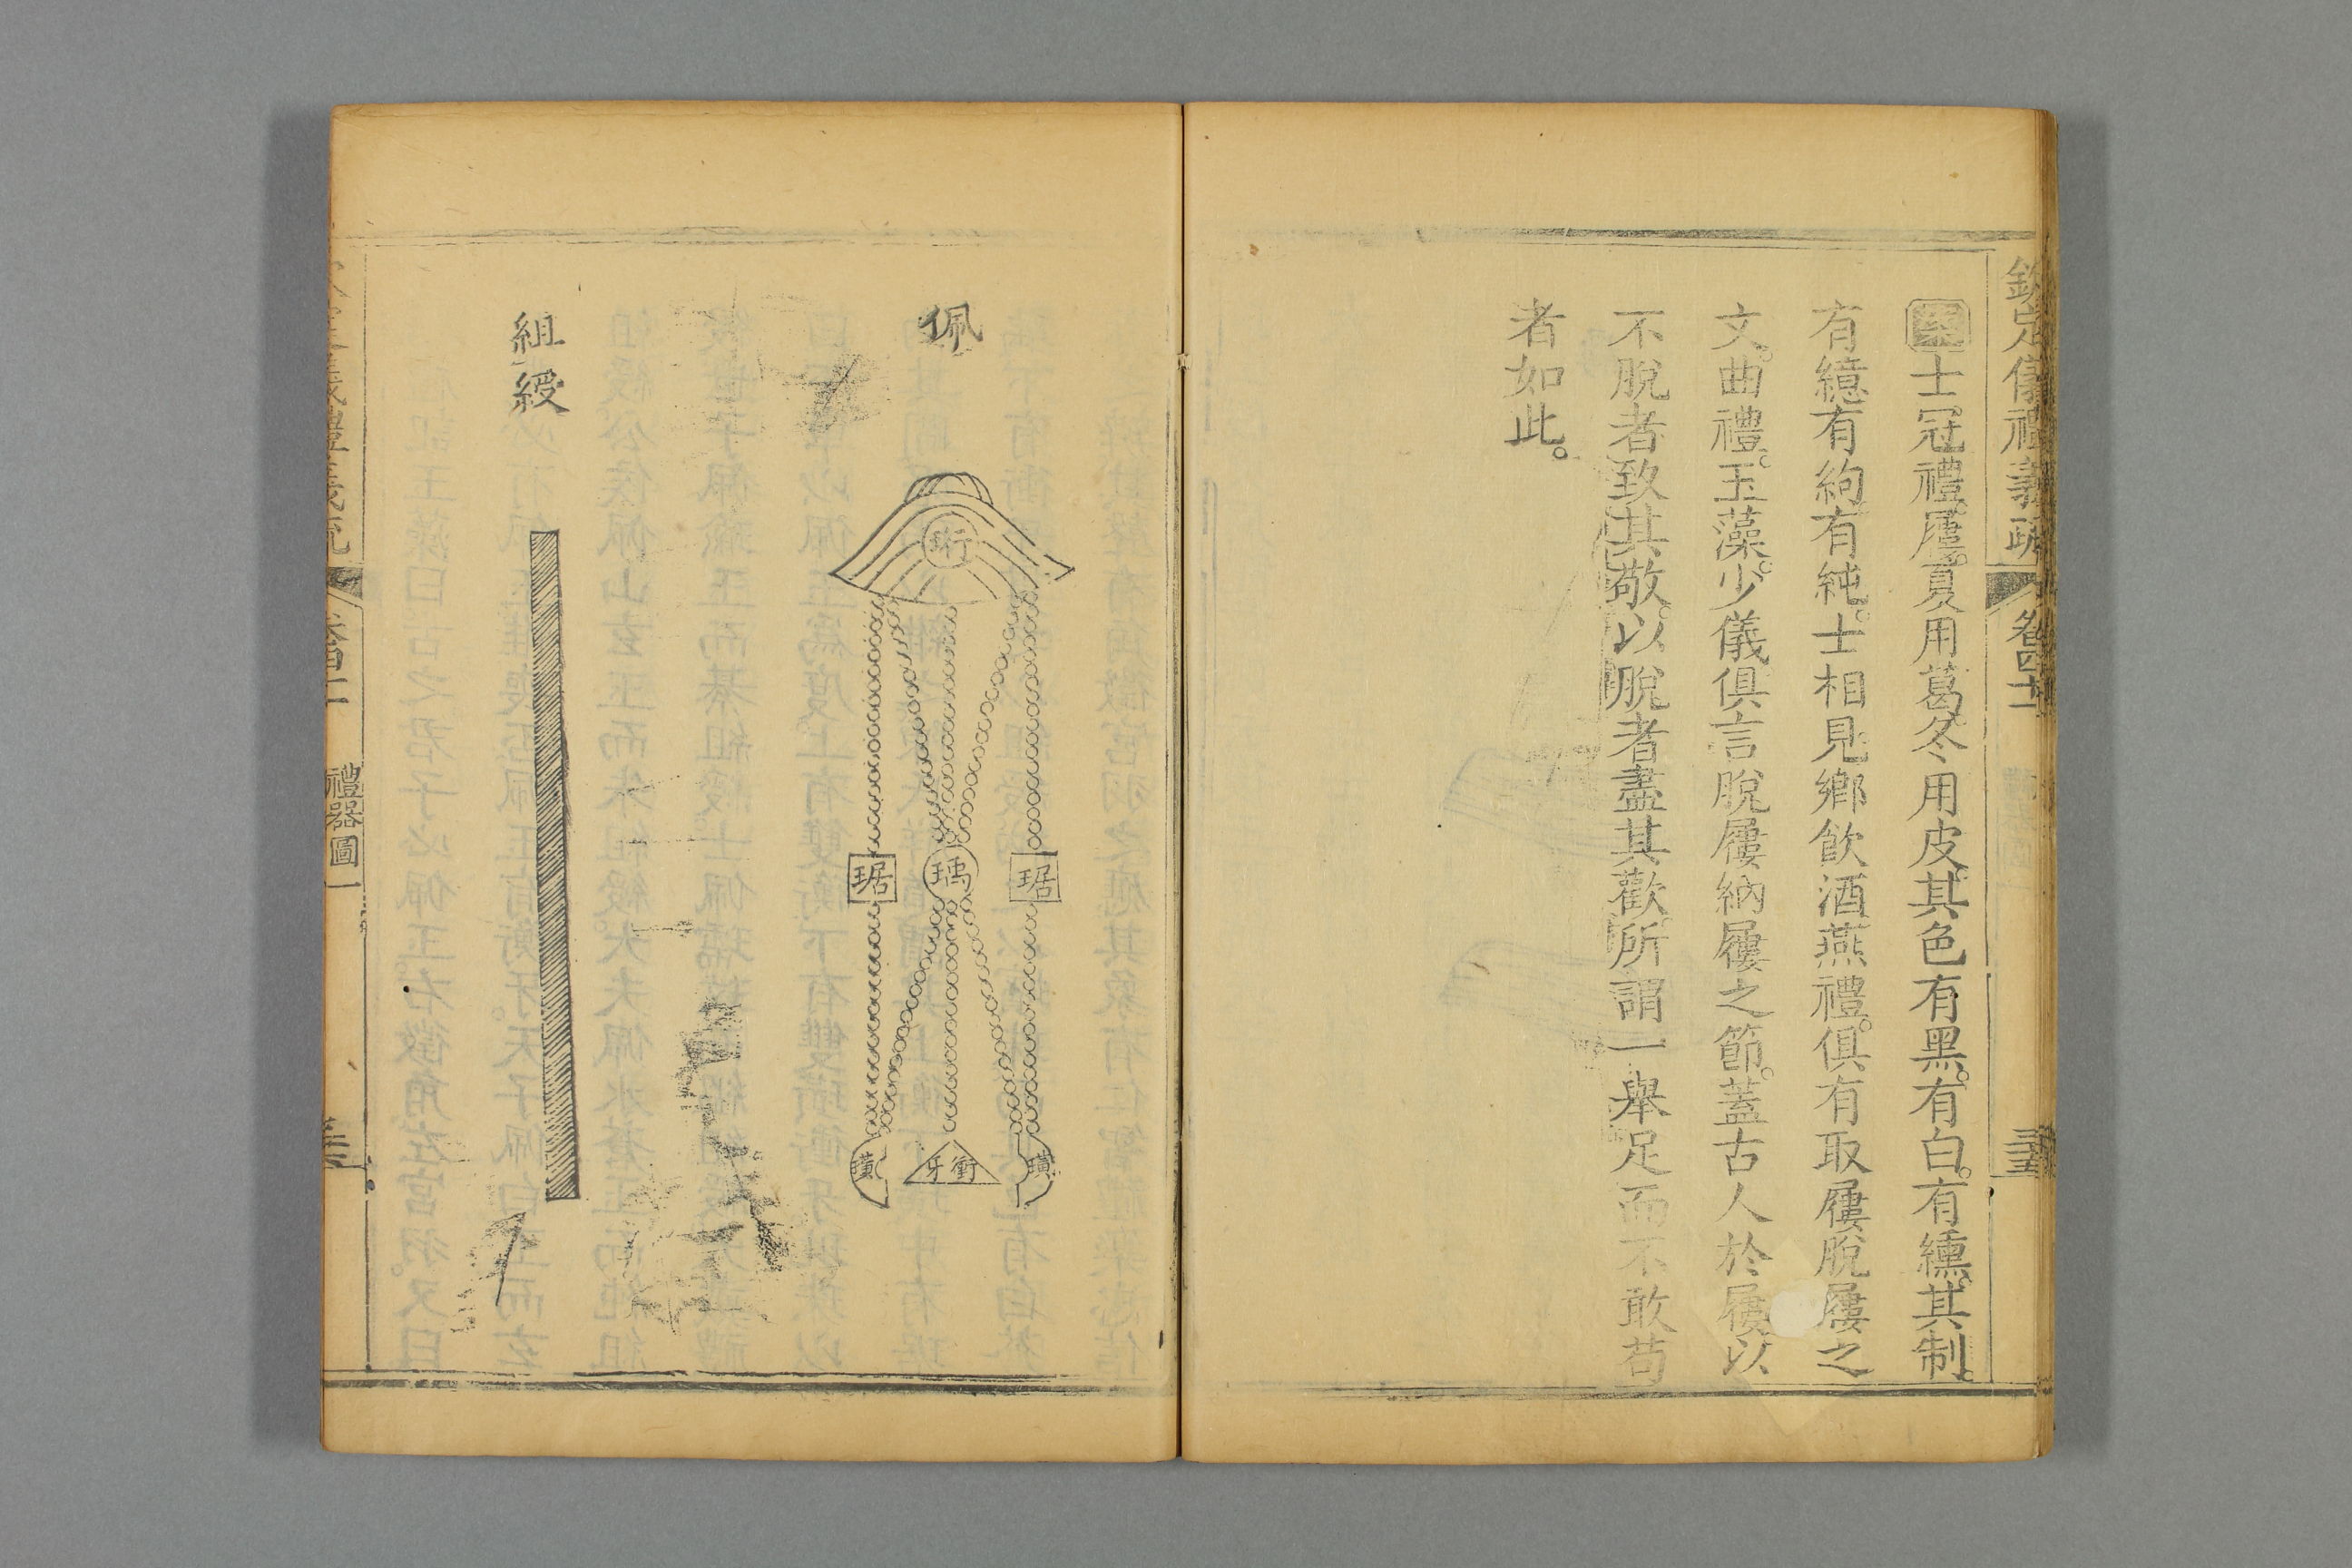 欽定儀禮義疏 卷四十二
士冠禮屨夏用葛冬用皮其色有黑有白有纁其制
有繶有絇有純士相見鄉飲酒燕禮俱有取屨脫屨之
文曲禮玉藻少儀俱言脫屨納屨之節蓋古人於屨以
不脫者致其敬以脫者盡其歡所謂一舉足而不敢苟
者如此
佩
珩
琚
瑀
琚
璜
衝牙
璜
組綬
禮器圖